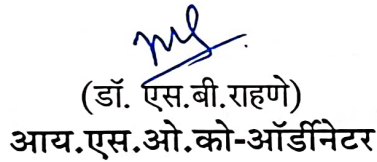 (डॉ. एस.बी.राहणे)
आय.एस.ओ.को-ऑर्डीनेटर